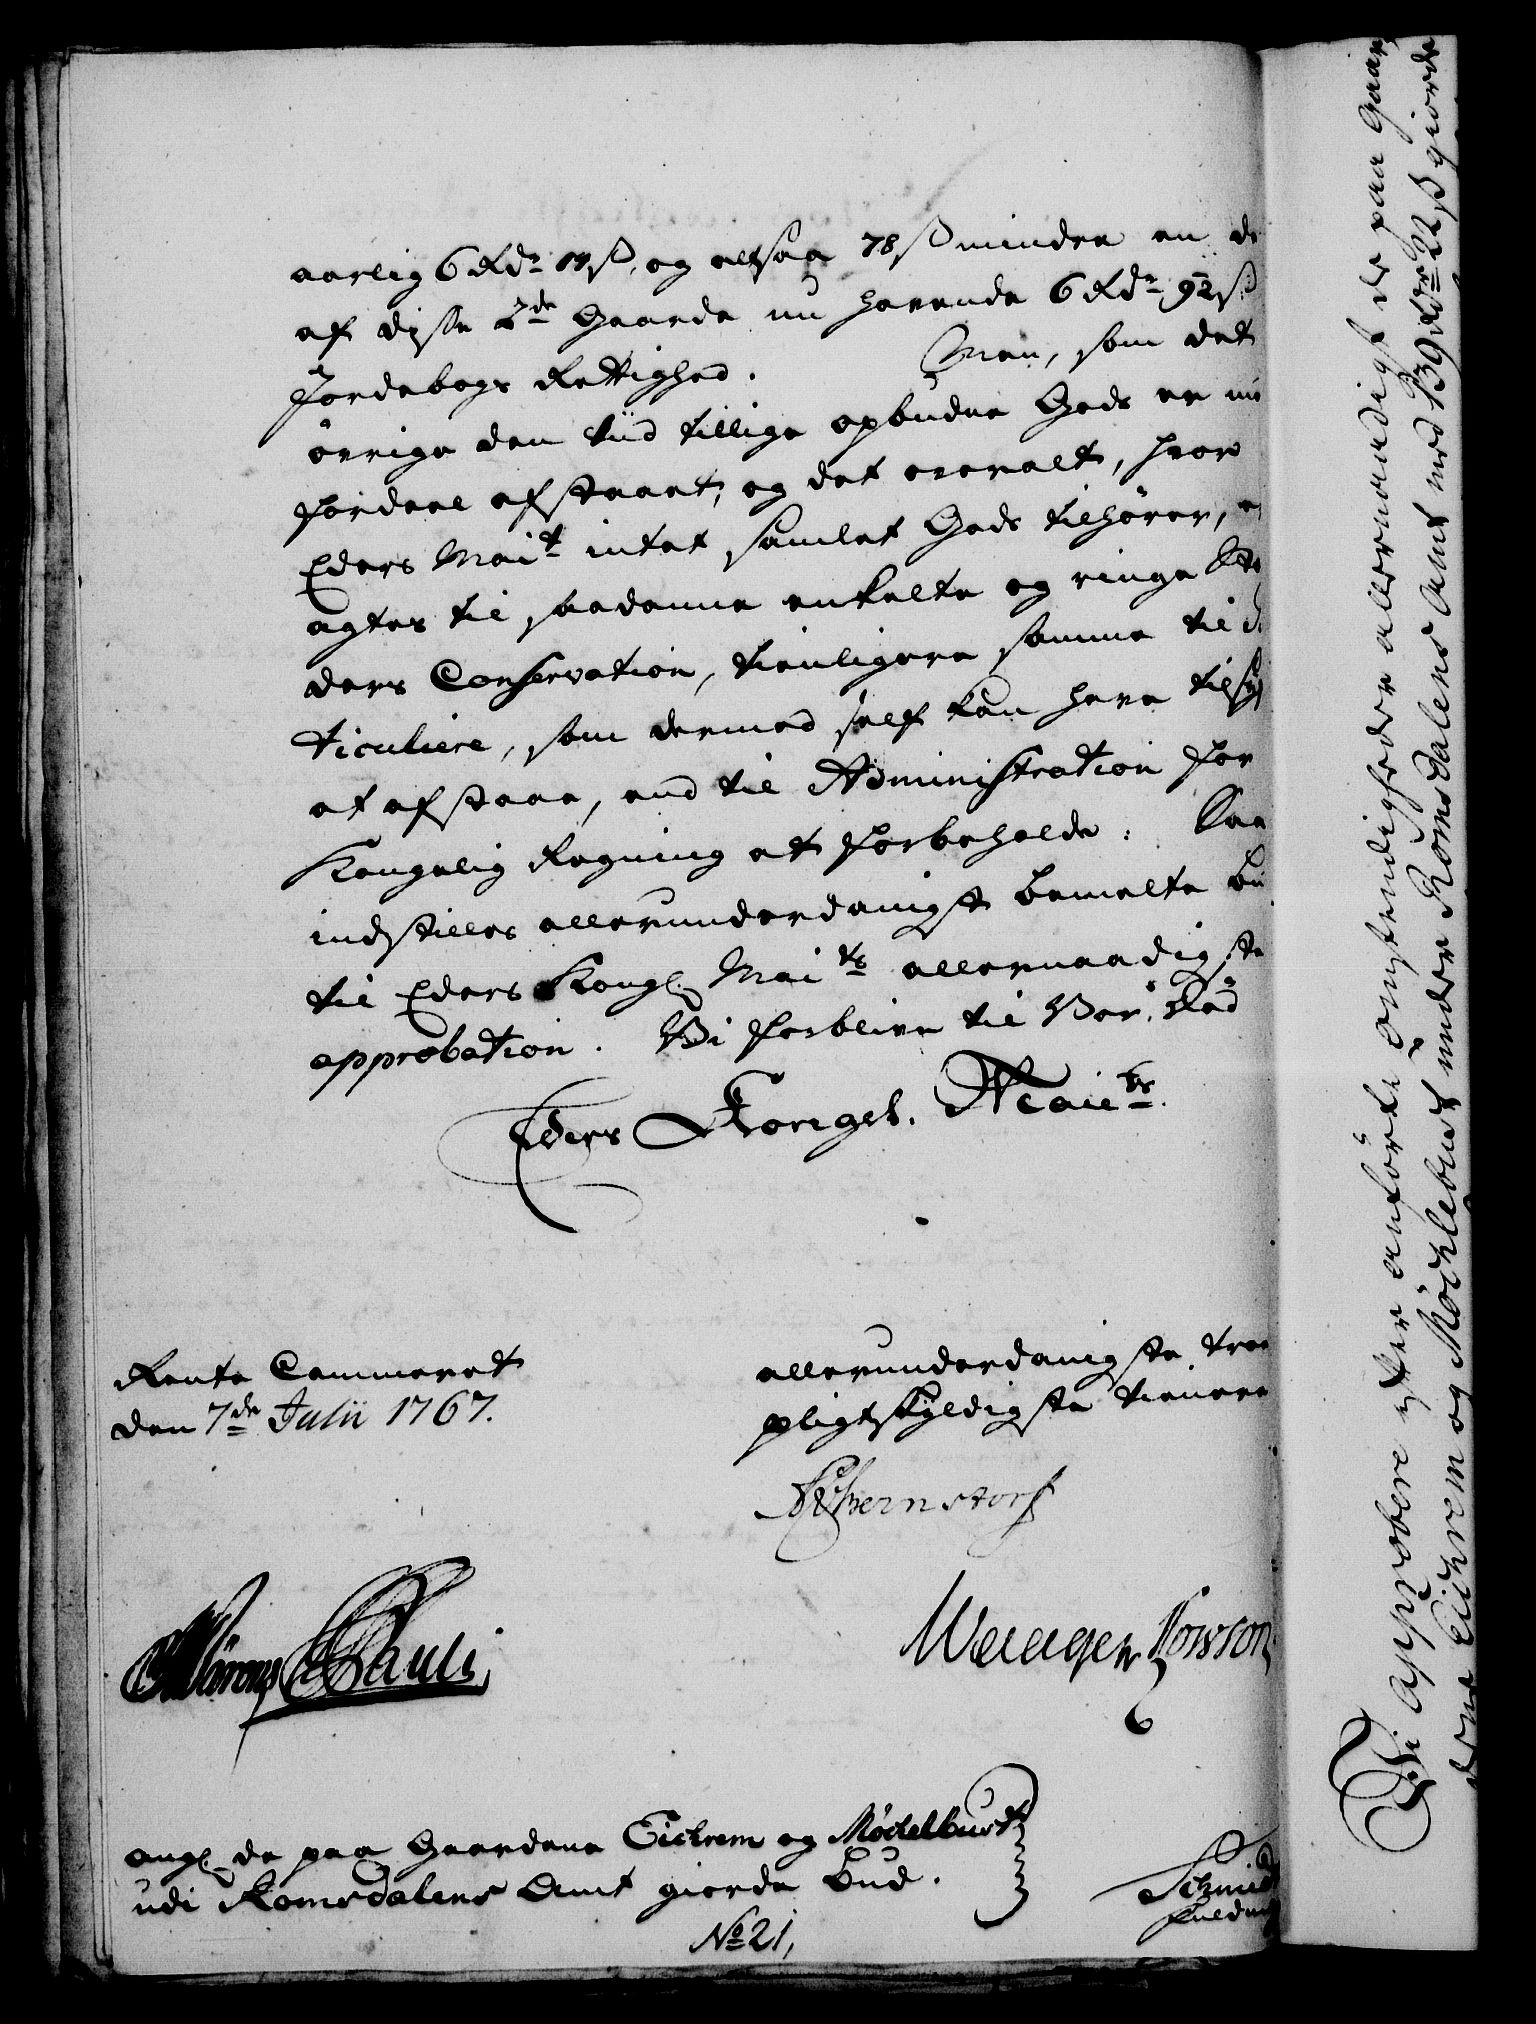 aarlig 6 Rdr 14 ß, og altsaa 78 ß mindre en de
af disse 2de Gaarde nu havende 6 Rdr 92 ß
Jordebogs Rettighed. Men, som det
övrige den tiid tillige opbudne Gods er
fordeel afstaaet, og det overalt, hvor
Eders Mait intet samlet Gods tilhører,
agtes til saadanne enkelte og ringe
ders Conservation, tienligere samme til
ticuliere, som dermed self kan have tilsyn
at afstaae, end til Administration for
Kongelig Regning at forbeholde: Saa
indstilles allerunderdanigst bemelte
til Eders Kongl. Maits allernaadigste
approbation. Vi forblive til Vor. Död
Eders Kongel. Maits.
Rente Cammeret
den 7de Julii 1767.
allerunderdanigste, troe
pligtskyldigste tienere
Bernstorff
Pauli
angl. de paa Gaardene Eichrem og Möchelbust
udi Romsdalens Amt giorde bud.
No 21,
Schmidt
Vi approbere efter anförte Omstendigheder allernaadigst de paa Gaar
dene Eichrem og Möchlebust under Romsdalens Amt med 139 Rdr 22 ß giorde